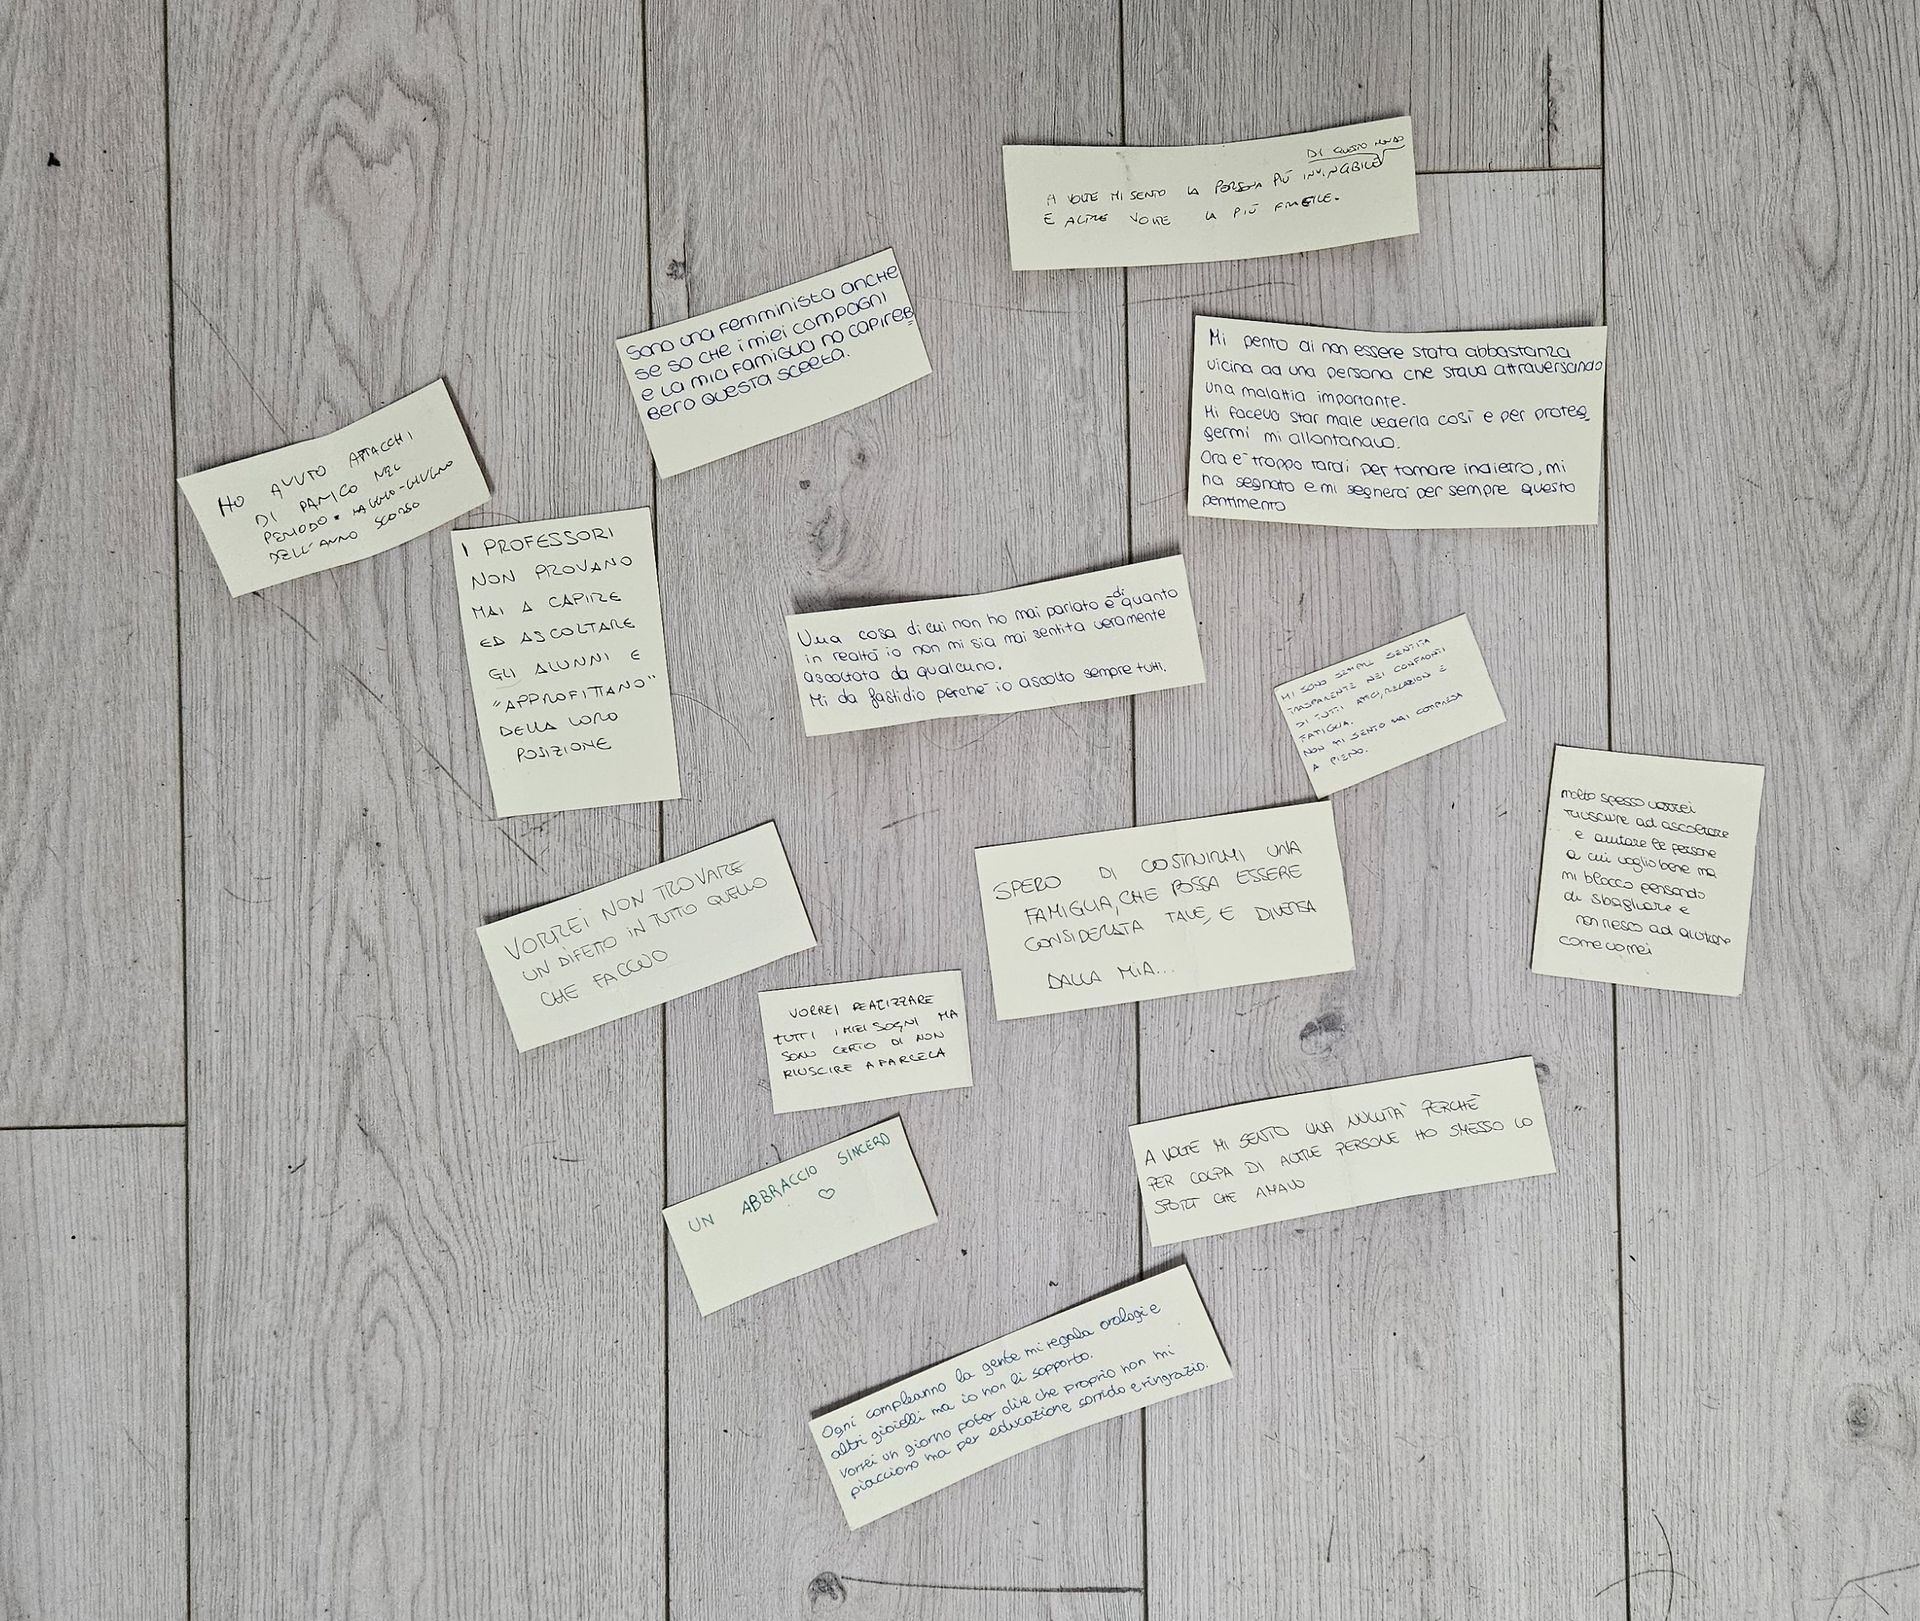 DI QUESTO MONDO
A VOLTE MI SENTO LA PERSONA PIÙ INVINCIBILE
E ALTRE VOLTE LA PIÙ FRAGILE.
Sono una femminista anche
se so che i miei compagni
e la mia famiglia no capireb
bero questa scelta.
Mi pento di non essere stata abbastanza
vicina ad una persona che stava attraversando
una malattia importante.
Mi faceva star male vederla così e per proteg
germi mi allontanavo.
Ora è troppo tardi per tornare indietro, mi
ha segnato e mi segnerà per sempre questo
pentimento
HO AVUTO ATTACCHI
DI PANICO NEL
PERIODO MAGGIO-GIUGNO
DELL'ANNO SCORSO
I PROFESSORI
NON PROVANO
MAI A CAPIRE
ED ASCOLTARE
GLI ALUNNI E
"APPROFITTANO"
DELLA LORO
POSIZIONE
Una cosa di cui non ho mai parlato è di quanto
in realtà io non mi sia mai sentita veramente
ascoltata da qualcuno.
Mi da fastidio perchè io ascolto sempre tutti.
MI SONO SEMPRE SENTITA
TRASPARENTE NEI CONFRONTI
DI TUTTI AMICI, RELAZIONI E
FAMIGLIA.
NON MI SENTO MAI COMPRESA
A PIENO.
molto spesso vorrei
riuscire ad ascoltare
e aiutare le persone
a cui voglio bene ma
mi blocco pensando
di sbagliare e
non riesco ad aiutare
come vorrei
VORREI NON TROVARE
UN DIFETTO IN TUTTO QUELLO
CHE FACCIO
SPERO DI COSTRUIRMI UNA
FAMIGLIA, CHE POSSA ESSERE
CONSIDERATA TALE, E DIVERSA
DALLA MIA...
VORREI REALIZZARE
TUTTI I MIEI SOGNI MA
SONO CERTO DI NON
RIUSCIRE A FARCELA
A VOLTE MI SENTO UNA NULLITÀ PERCHÈ
PER COLPA DI ALTRE PERSONE HO SMESSO LO
SPORT CHE AMAVO
UN ABBRACCIO SINCERO
♡
Ogni compleanno la gente mi regala orologi e
altri gioielli ma io non li sopporto.
Vorrei un giorno poter dire che proprio non mi
piacciono ma per educazione sorrido e ringrazio.